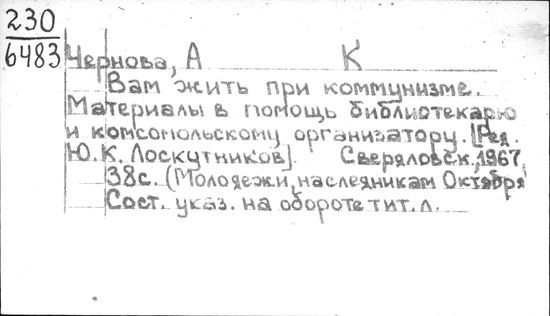 230
6483
Чернова, А К
Вам жить при коммунизме.
Материалы в помощь библиотекарю
и комсомольскому организатору. [Ред.
Ю.К. Лоскутников]. Свердловск, 1967.
38с. (Молодежи, наследникам Октября
Сост. указ. на обороте тит. л.